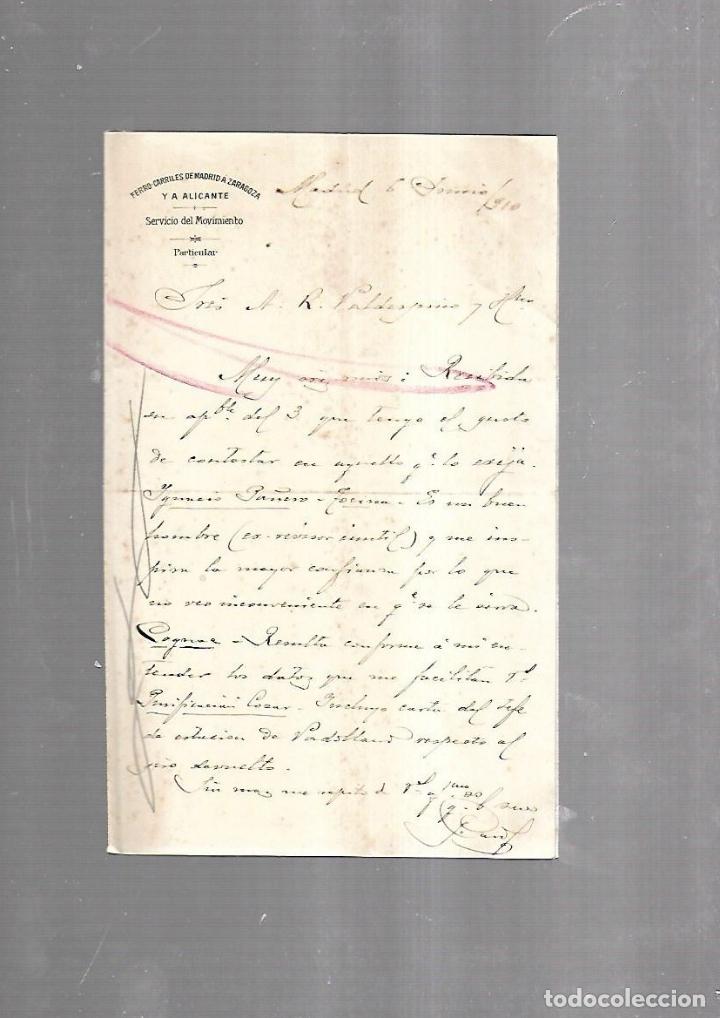 FERRO-CARRILES DE MADRID A ZARAGOZA
Y A ALICANTE
Servicio del Movimiento
Particular
Madrid 6 Junio/910
Sres A. R. Valdespino y Hno
Muy sres mios: Recibida
su apble. del 3 que tengo el gusto
de contestar en aquello qe. lo exija.
Ignacio Pañero - Tocina - Es un buen
hombre (ex-revisor inutil) y me ins-
pira la mayor confianza por lo que
no veo inconveniente en qe. se le sirva.
Cognac - Resulta conforme á mi en-
tender los datos que me facilitan Vs.
Purificación Cozar - Incluyo carta del Jefe
de estacion de respecto al
giro devuelto.
Sin mas me repito de Vs.
q. b. sus
todocoleccion.net